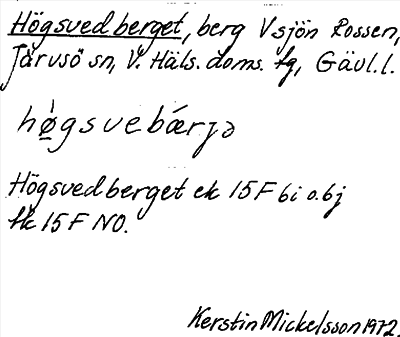 Högsvedberget, berg V sjön Rossen,
Järvsö sn, V. Häls. doms. tg, Gävl. l.
hø̀gsvebærjə
Högsvedberget ek 15F 6i o. 6j
tk 15F NO.
Kerstin Mickelsson 1972.